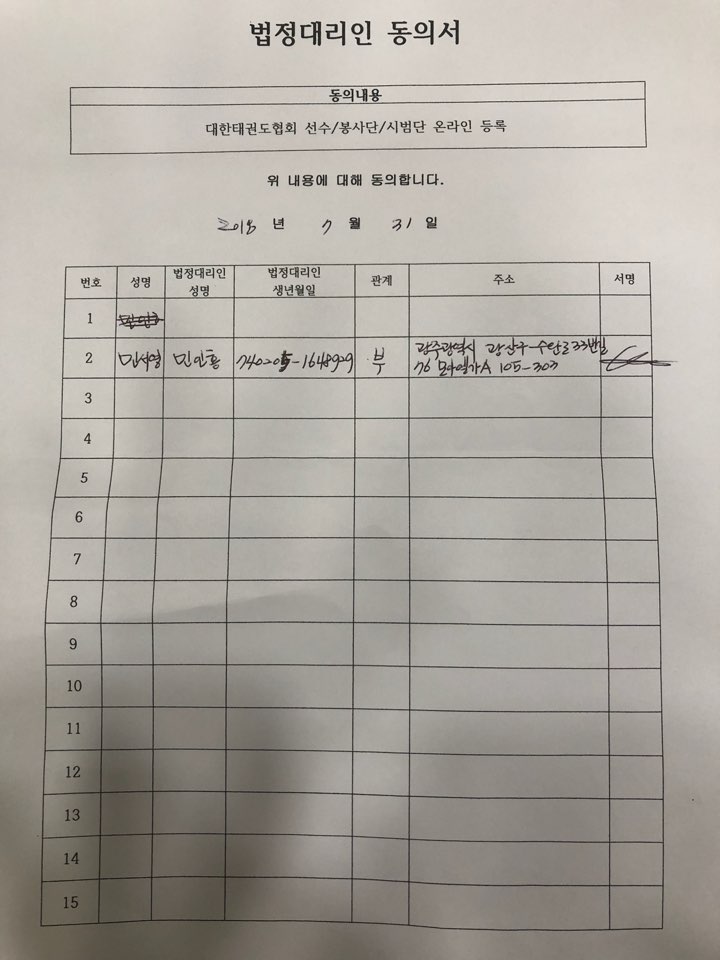 법정대리인 동의서
동의내용
대한태권도협회 선수/봉사단/시범단 온라인 등록
위 내용에 대해 동의합니다.
2018 년 7 월 31 일
번호 성명 법정대리인 성명 법정대리인 생년월일 관계 주소 서명
1
2 민서영 민인홍 740205-1648929 부 광주광역시 광산구 수완로33번길
76 모아엘가A 105-303
3
4
5
6
7
8
9
10
11
12
13
14
15